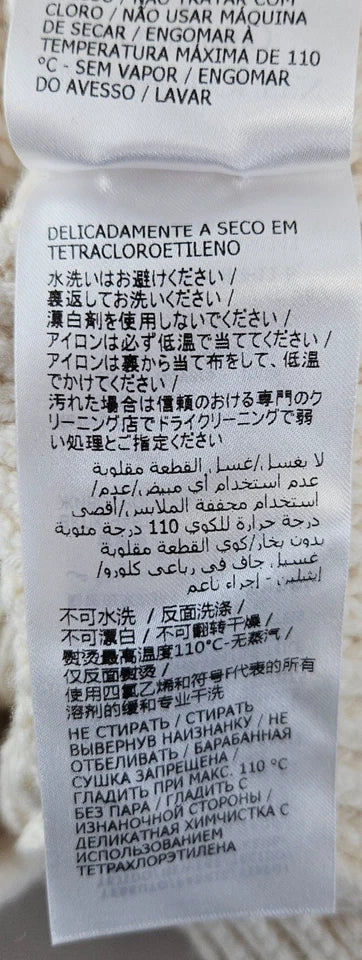 CLORO / NÃO USAR MÁQUINA
DE SECAR / ENGOMAR À
TEMPERATURA MÁXIMA DE 110
°C - SEM VAPOR / ENGOMAR
DO AVESSO / LAVAR
DELICADAMENTE A SECO EM
TETRACLOROETILENO
水洗いはお避けください /
裏返してお洗いください /
漂白剤を使用しないでください /
アイロンは必ず低温で当ててください /
アイロンは裏から当て布をして、低温
でかけてください /
汚れた場合は信頼のおける専門のク
リーニング店でドライクリーニングで弱
い処理とご指定ください
لا يغسل/غسل القطعة مقلوبة
عدم استخدام أي مبيض/عدم/
استخدام مجففة الملابس/أقصى
درجة حرارة للكوي 110 درجة مئوية
بدون بخار/كوي القطعة مقلوبة
غسيل جاف في رباعي كلورو/
إيثيلين - إجراء ناعم
不可水洗 / 反面洗涤 /
不可漂白 / 不可翻转干燥 /
熨烫最高温度110°C-无蒸汽 /
仅反面熨烫 /
使用四氯乙烯和符号F代表的所有
溶剂的缓和专业干洗
НЕ СТИРАТЬ / СТИРАТЬ
ВЫВЕРНУВ НАИЗНАНКУ / НЕ
ОТБЕЛИВАТЬ / БАРАБАННАЯ
СУШКА ЗАПРЕЩЕНА /
ГЛАДИТЬ ПРИ МАКС. 110 °C
БЕЗ ПАРА / ГЛАДИТЬ С
ИЗНАНОЧНОЙ СТОРОНЫ /
ДЕЛИКАТНАЯ ХИМЧИСТКА С
ИСПОЛЬЗОВАНИЕМ
ТЕТРАХЛОРЭТИЛЕНА